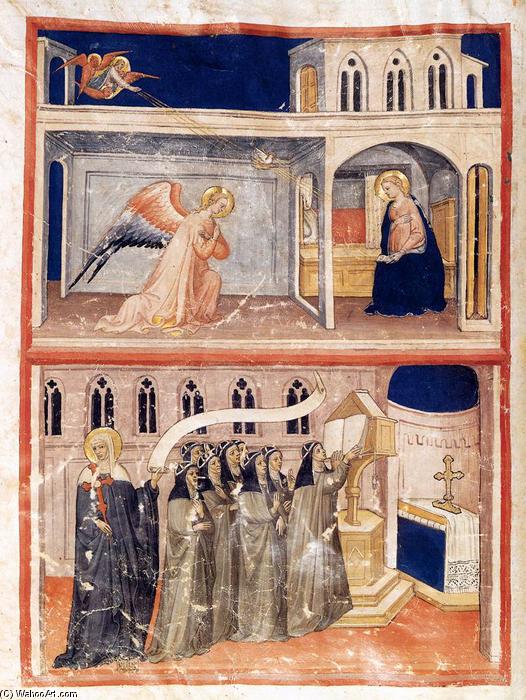 (C) WahooArt.com